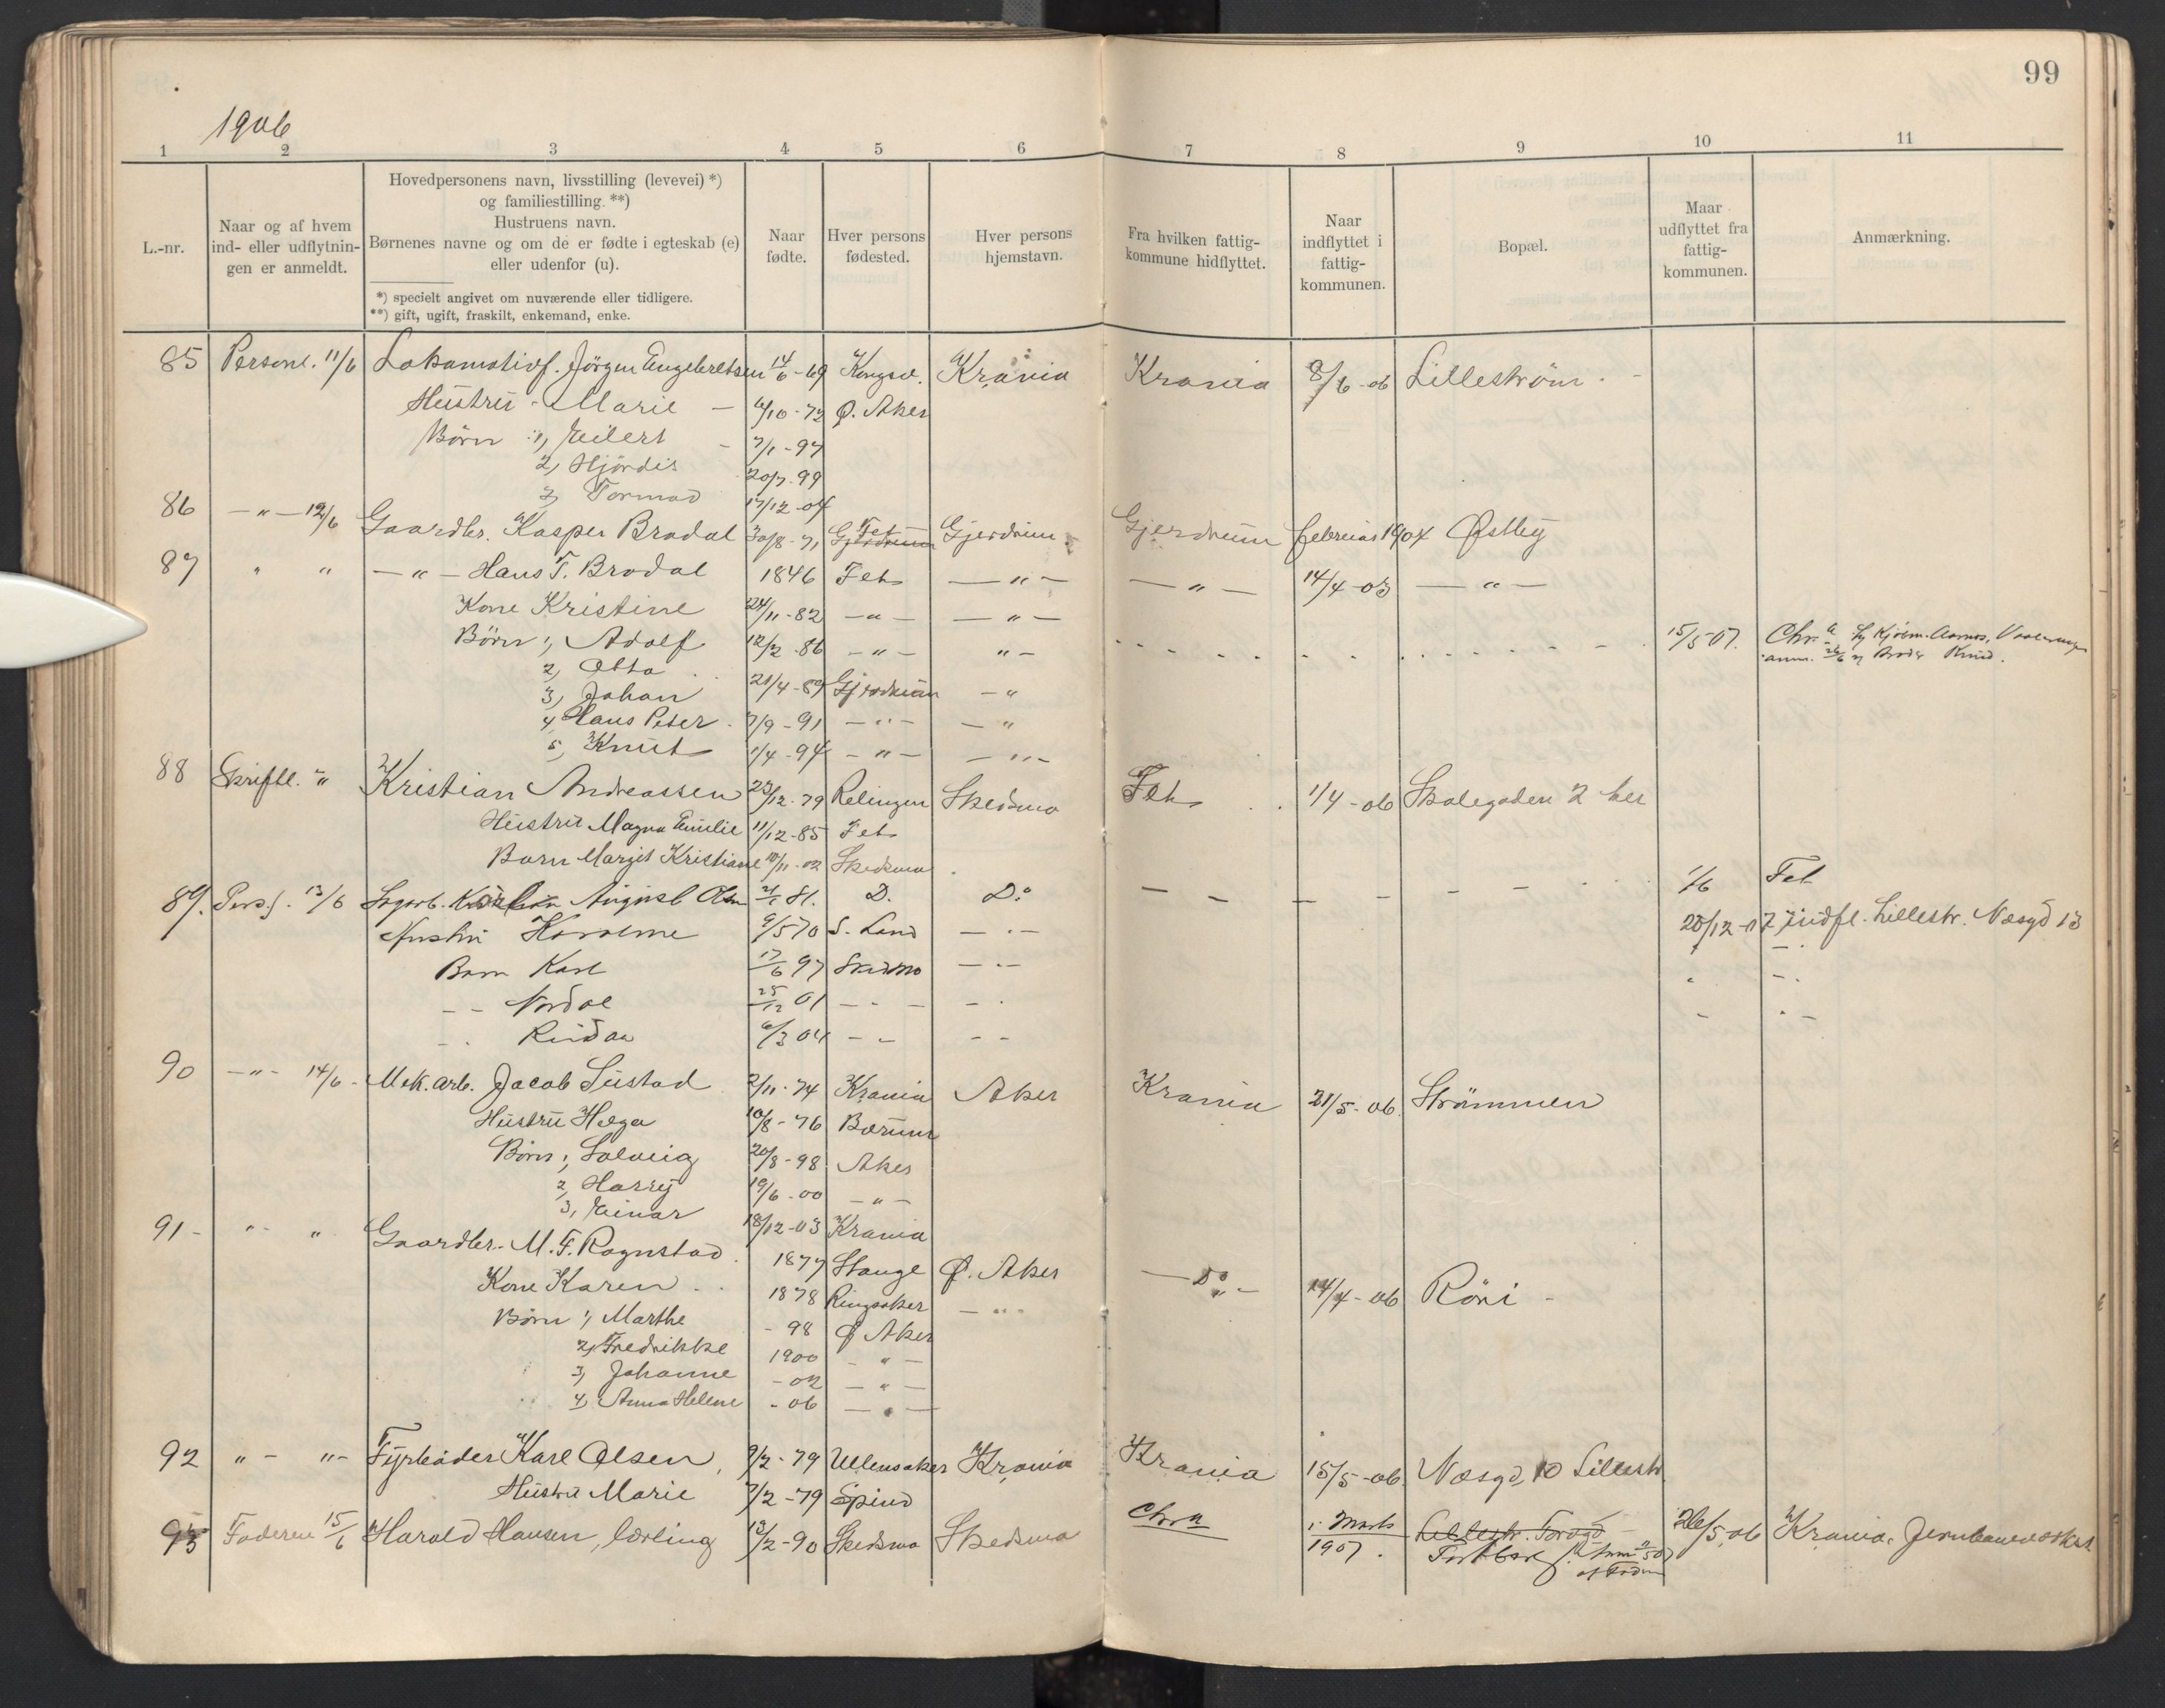 99
1906
1 2 3 4 5 6 7 8 9 10 11
L.-nr.
Naar og af hvem
ind- eller udflytnin-
gen er anmeldt.
Hovedpersonens navn, livsstilling (levevei) *)
og familiestilling. **)
Hustruens navn.
Børnenes navne og om de er fødte i egteskab (e)
eller udenfor (u).
*) specielt angivet om nuværende eller tidligere.
**) gift, ugift, fraskilt, enkemand, enke.
Naar
fødte.
Hver persons
fødested.
Hver persons
hjemstavn.
Fra hvilken fattig-
kommune hidflyttet.
Naar
indflyttet i
fattig-
kommunen.
Bopæl.
Maar
udflyttet fra
fattig-
kommunen.
Anmærkning.
85 Personl. 11/6 Lokomotivf. Jörgen Engebretsen 14/6-69 Kongsv. Krania Krania 8/6-06 Lilleström.
Hustru - Marie - 6/10-72 Ø. Aker
Börn 1, Eilert - 7/1-97
2, Hjördis 20/7-99
3, Tormod 17/12-04
86 -"- 12/6 Gaardbr. Kasper Brodal 30/8-71 Gjerdrum Fet Gjerdrum Gjerdrum februar 1904 Østby
87 " " -"- Hans T. Brodal 1846 Fet -"- -"- 14/4-03 -"-
Kone Kristine 24/11-82 -"- -"-
Börn 1, Adolf 12/2-86 -"- "- 15/5-07. Chr.a
2, Otto . . anm. 26/6 Broder Knud.
3, Johan 21/4-89 Gjerdrum -"
4, Hans Peter . 7/9-91 -"- -"
5, Knut 1/4-94 -"- -"-
88 Skriftl. " Kristian Andreassen 23/12-79 Relingen Skedsmo Fet . . 1/4-06 Skolegaden 2 her
Hustru Magna Emilie 11/12-85 Fet
Barn Margit Kristiane 10/11-02 Skedsmo
89. Pers. 13/6 August Olsen 81. D. Do - - - - - - 1/6 Fet
Hustru 9/5 70 S. Land - " - 20/12-07 Indfl. Lillestr. Næsgd 13
Barn Karl 17/6 97 Skedsmo - " -
- - 25/12 01 - " - - "
- " 6/3 04 - - - -
90 -"- 14/6 - Mek. arb. Jacob Sustad 2/11-74 Krania Aker Krania 21/5-06. Strömmen
Hustru Helga 10/8-76 Bærum
Börn 1, Solveig 20/8-98 Aker
2, Harry 19/6-00 -"-
3, Einar 18/12-03 Krania
91 - " " Gaardbr. M. F. Rognstad . 1877 Stange Ø. Aker - Do - 14/4-06 Röri -
Kone Karen . . 1878 Ringsaker -"-
Börn 1, Marthe - 98 Ø Aker
2, Fredrikke 1900 -"-
3, Johanne - 02 -"-
4, Anna Helene - 06 -"-
92 " - "- Fyrböder Karl Olsen, 9/2-79 Ullensaker Krania Krania 15/5-06. Næsgd. 10 Lillestr.
Hustru Marie 7/2-79 Spind
93 Faderen 15/6 Harald Hansen, lærling 13/2-90 Skedsmo Skedsmo Chr.a 1. Marts Lillestr. Torvgd 26/5.06 Krania. Jernbaneverkst.
1907. af Faderen